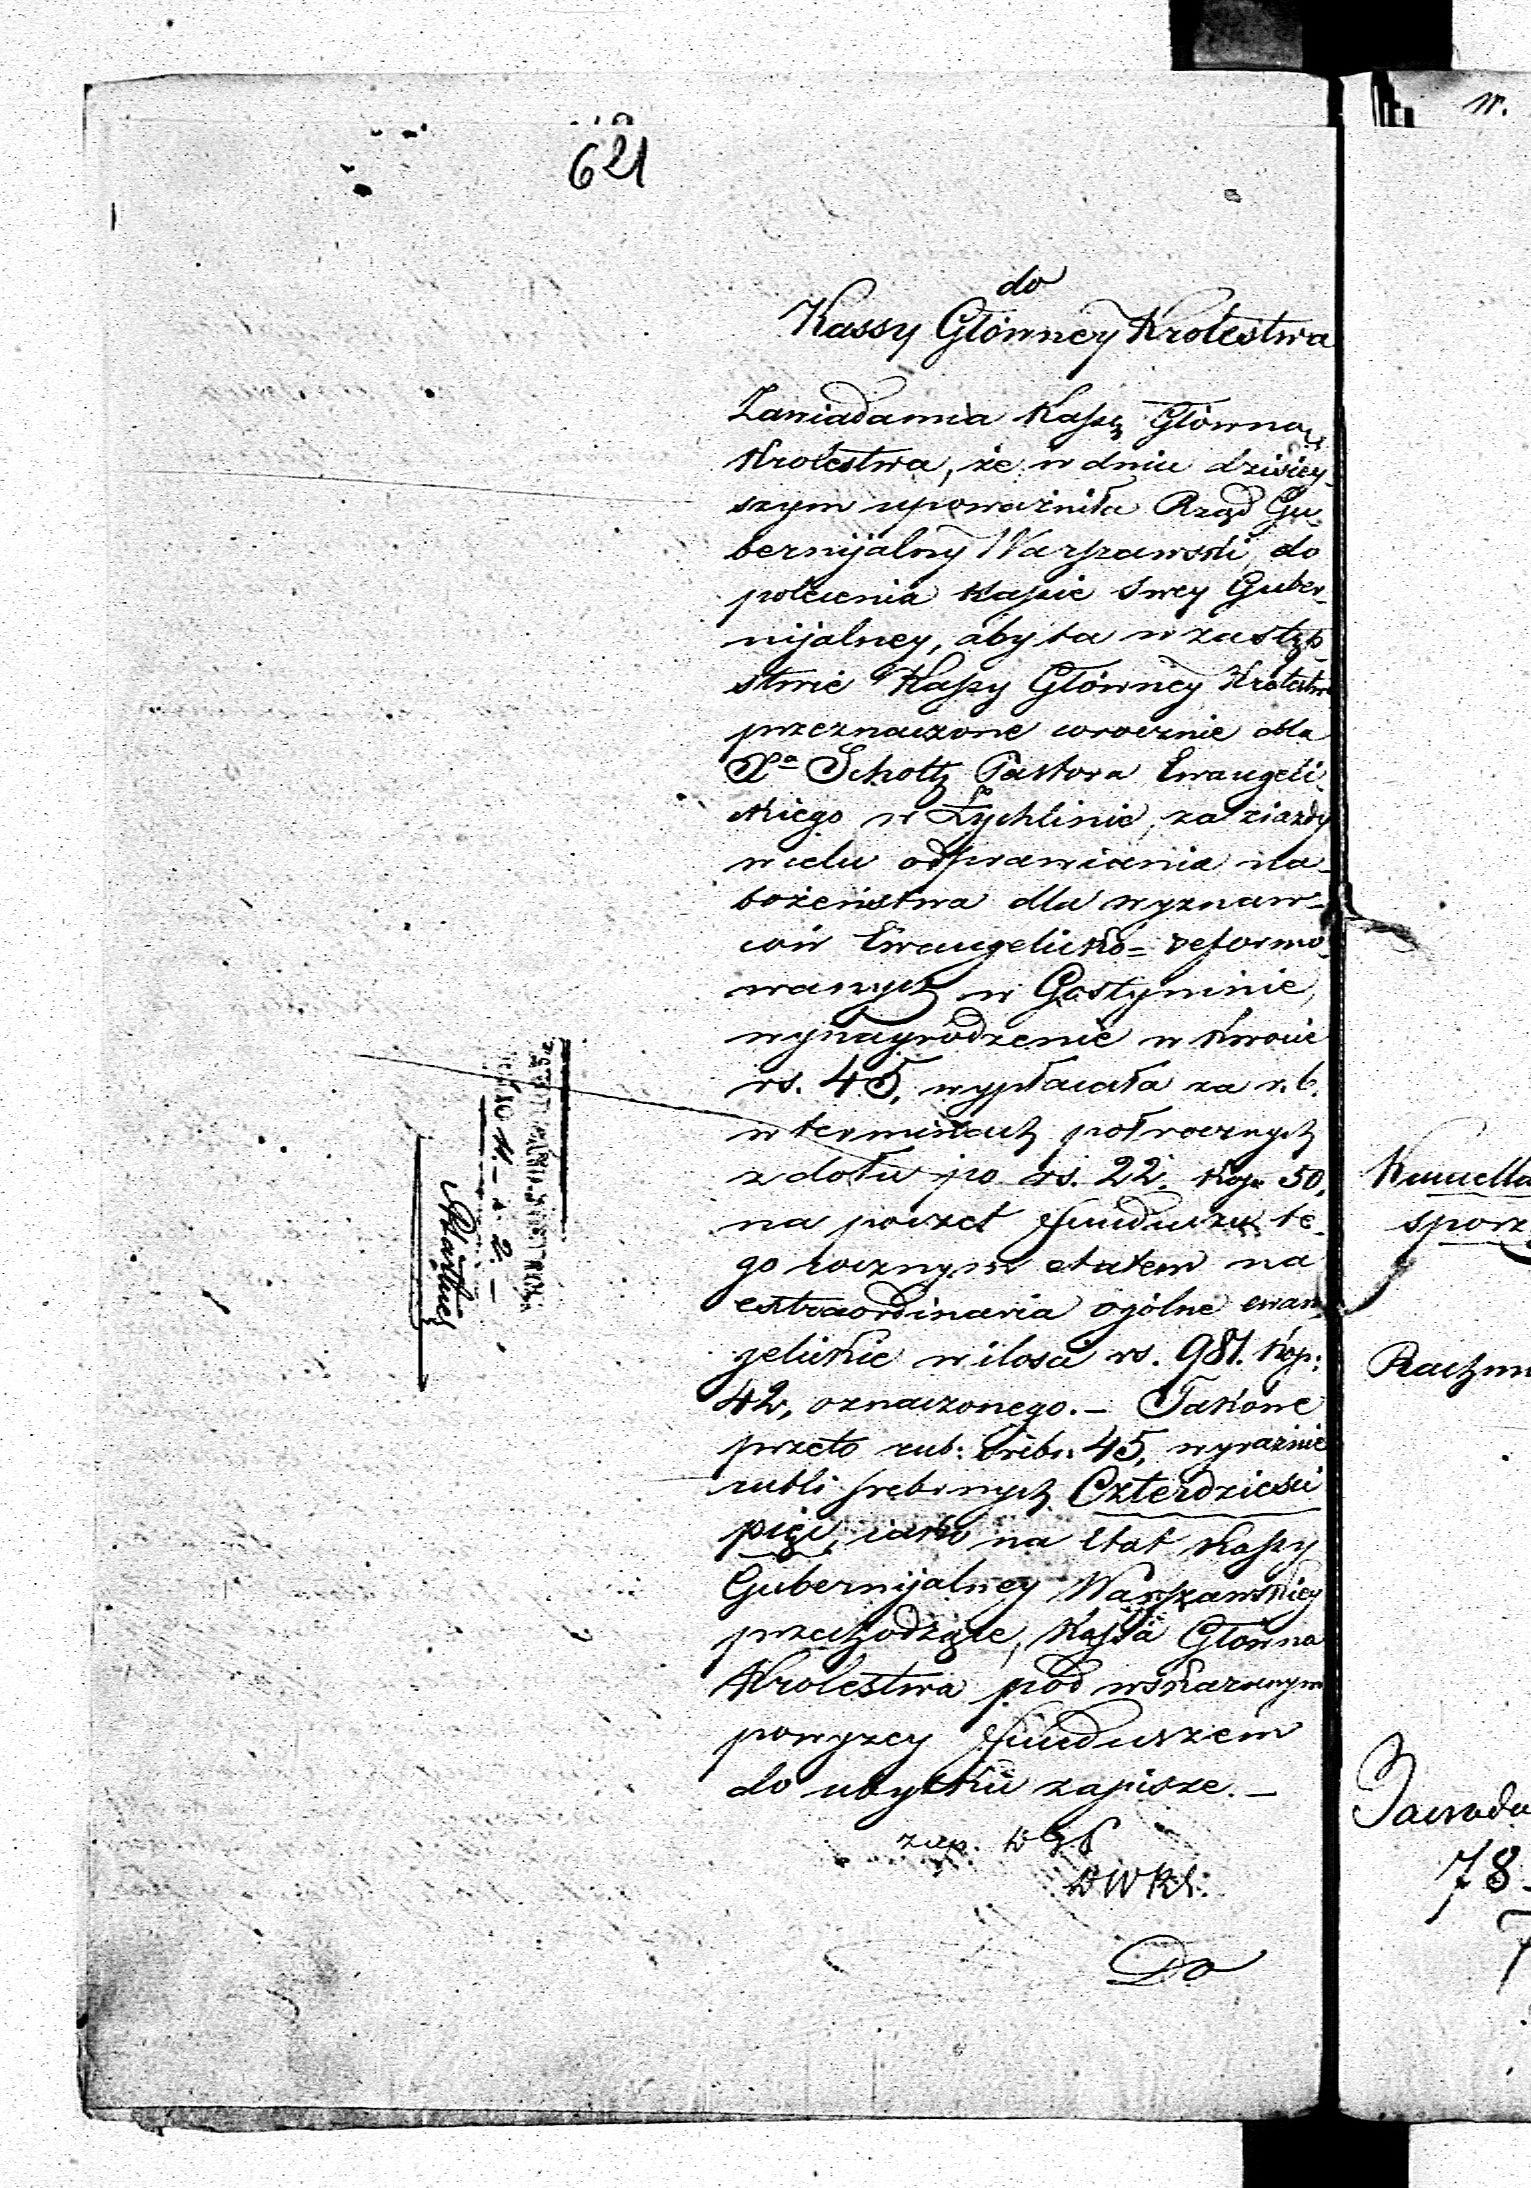 621
do
Kassy Główney Krolestwa
Zawiadamia Kassę Główną
Krolestwa, że w dniu dzisiey-
szym upoważniła Rząd Gu-
bernijalny Warszawski, do
polecenia Kassie swey Guber-
nijalney, aby ta w zastęp-
stwie Kassy Główney Krolestwa
przeznaczone corocznie dla
Xa Scholtz Pastora Ewangeli-
ckiego w Żychlinie, za ziazdy
w celu odprawiania na-
bożeństwa dla wyznaw-
ców Ewangelicko=reformo-
wanych w Gostyninie,
wynagrodzenie w kwocie
rs. 45, wypłacała za r. b.
w terminach połrocznych
z dołu po rs. 22. kop. 50,
na poczet funduszu te-
go rocznym etatem na
extraordinaria ogólne ewan-
gelickie w ilosci rs. 981. kop:
42, oznaczonego. – Takowe
przeto rub: srebr: 45, wyraźnie
rubli srebrnych Czterdzieści
pięć, iako na etat Kassy
Gubernijalney Warszawskiey
przechodzące, Kassa Główna
Krolestwa pod wskazanym
powyżey funduszem
do ubytku zapisze. –
Do
78